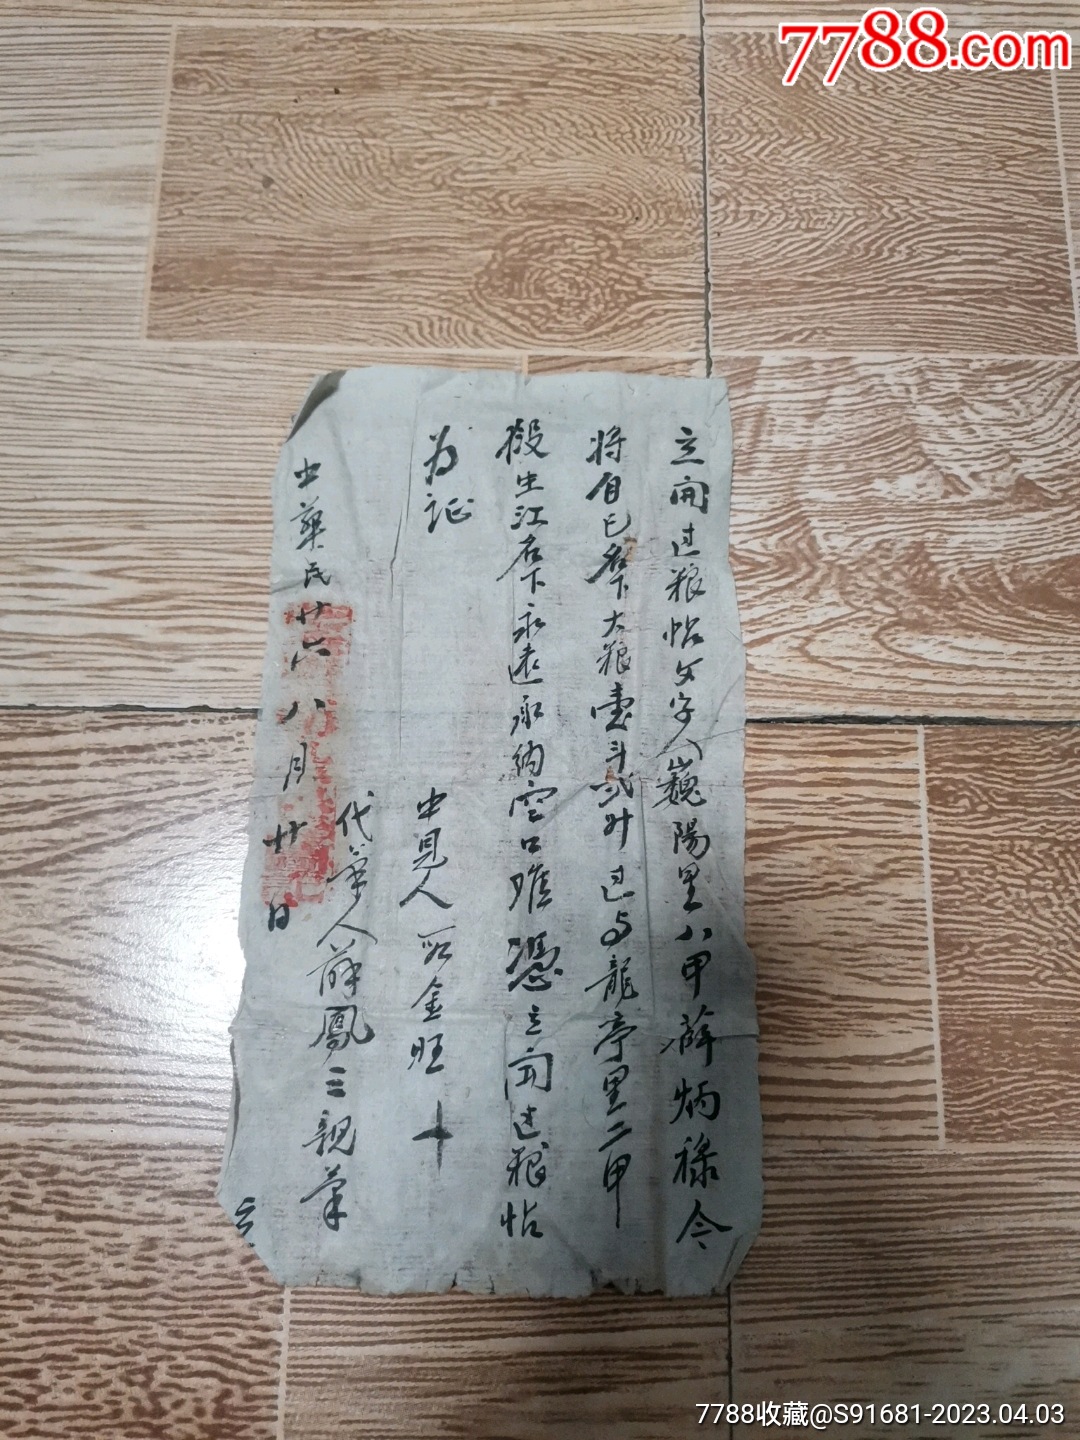 7788.com
立開过粮帖文字人巍陽里八甲薛炳禄今
将自己名下大粮壹斗弍升过与龍亭里二甲
殺生江名下永远承纳空口难憑立開过粮帖
为证
中見人 金旺 十
代筆人薛鳳三親筆
中華民廿六八月廿日
立
7788收藏@S91681-2023.04.03